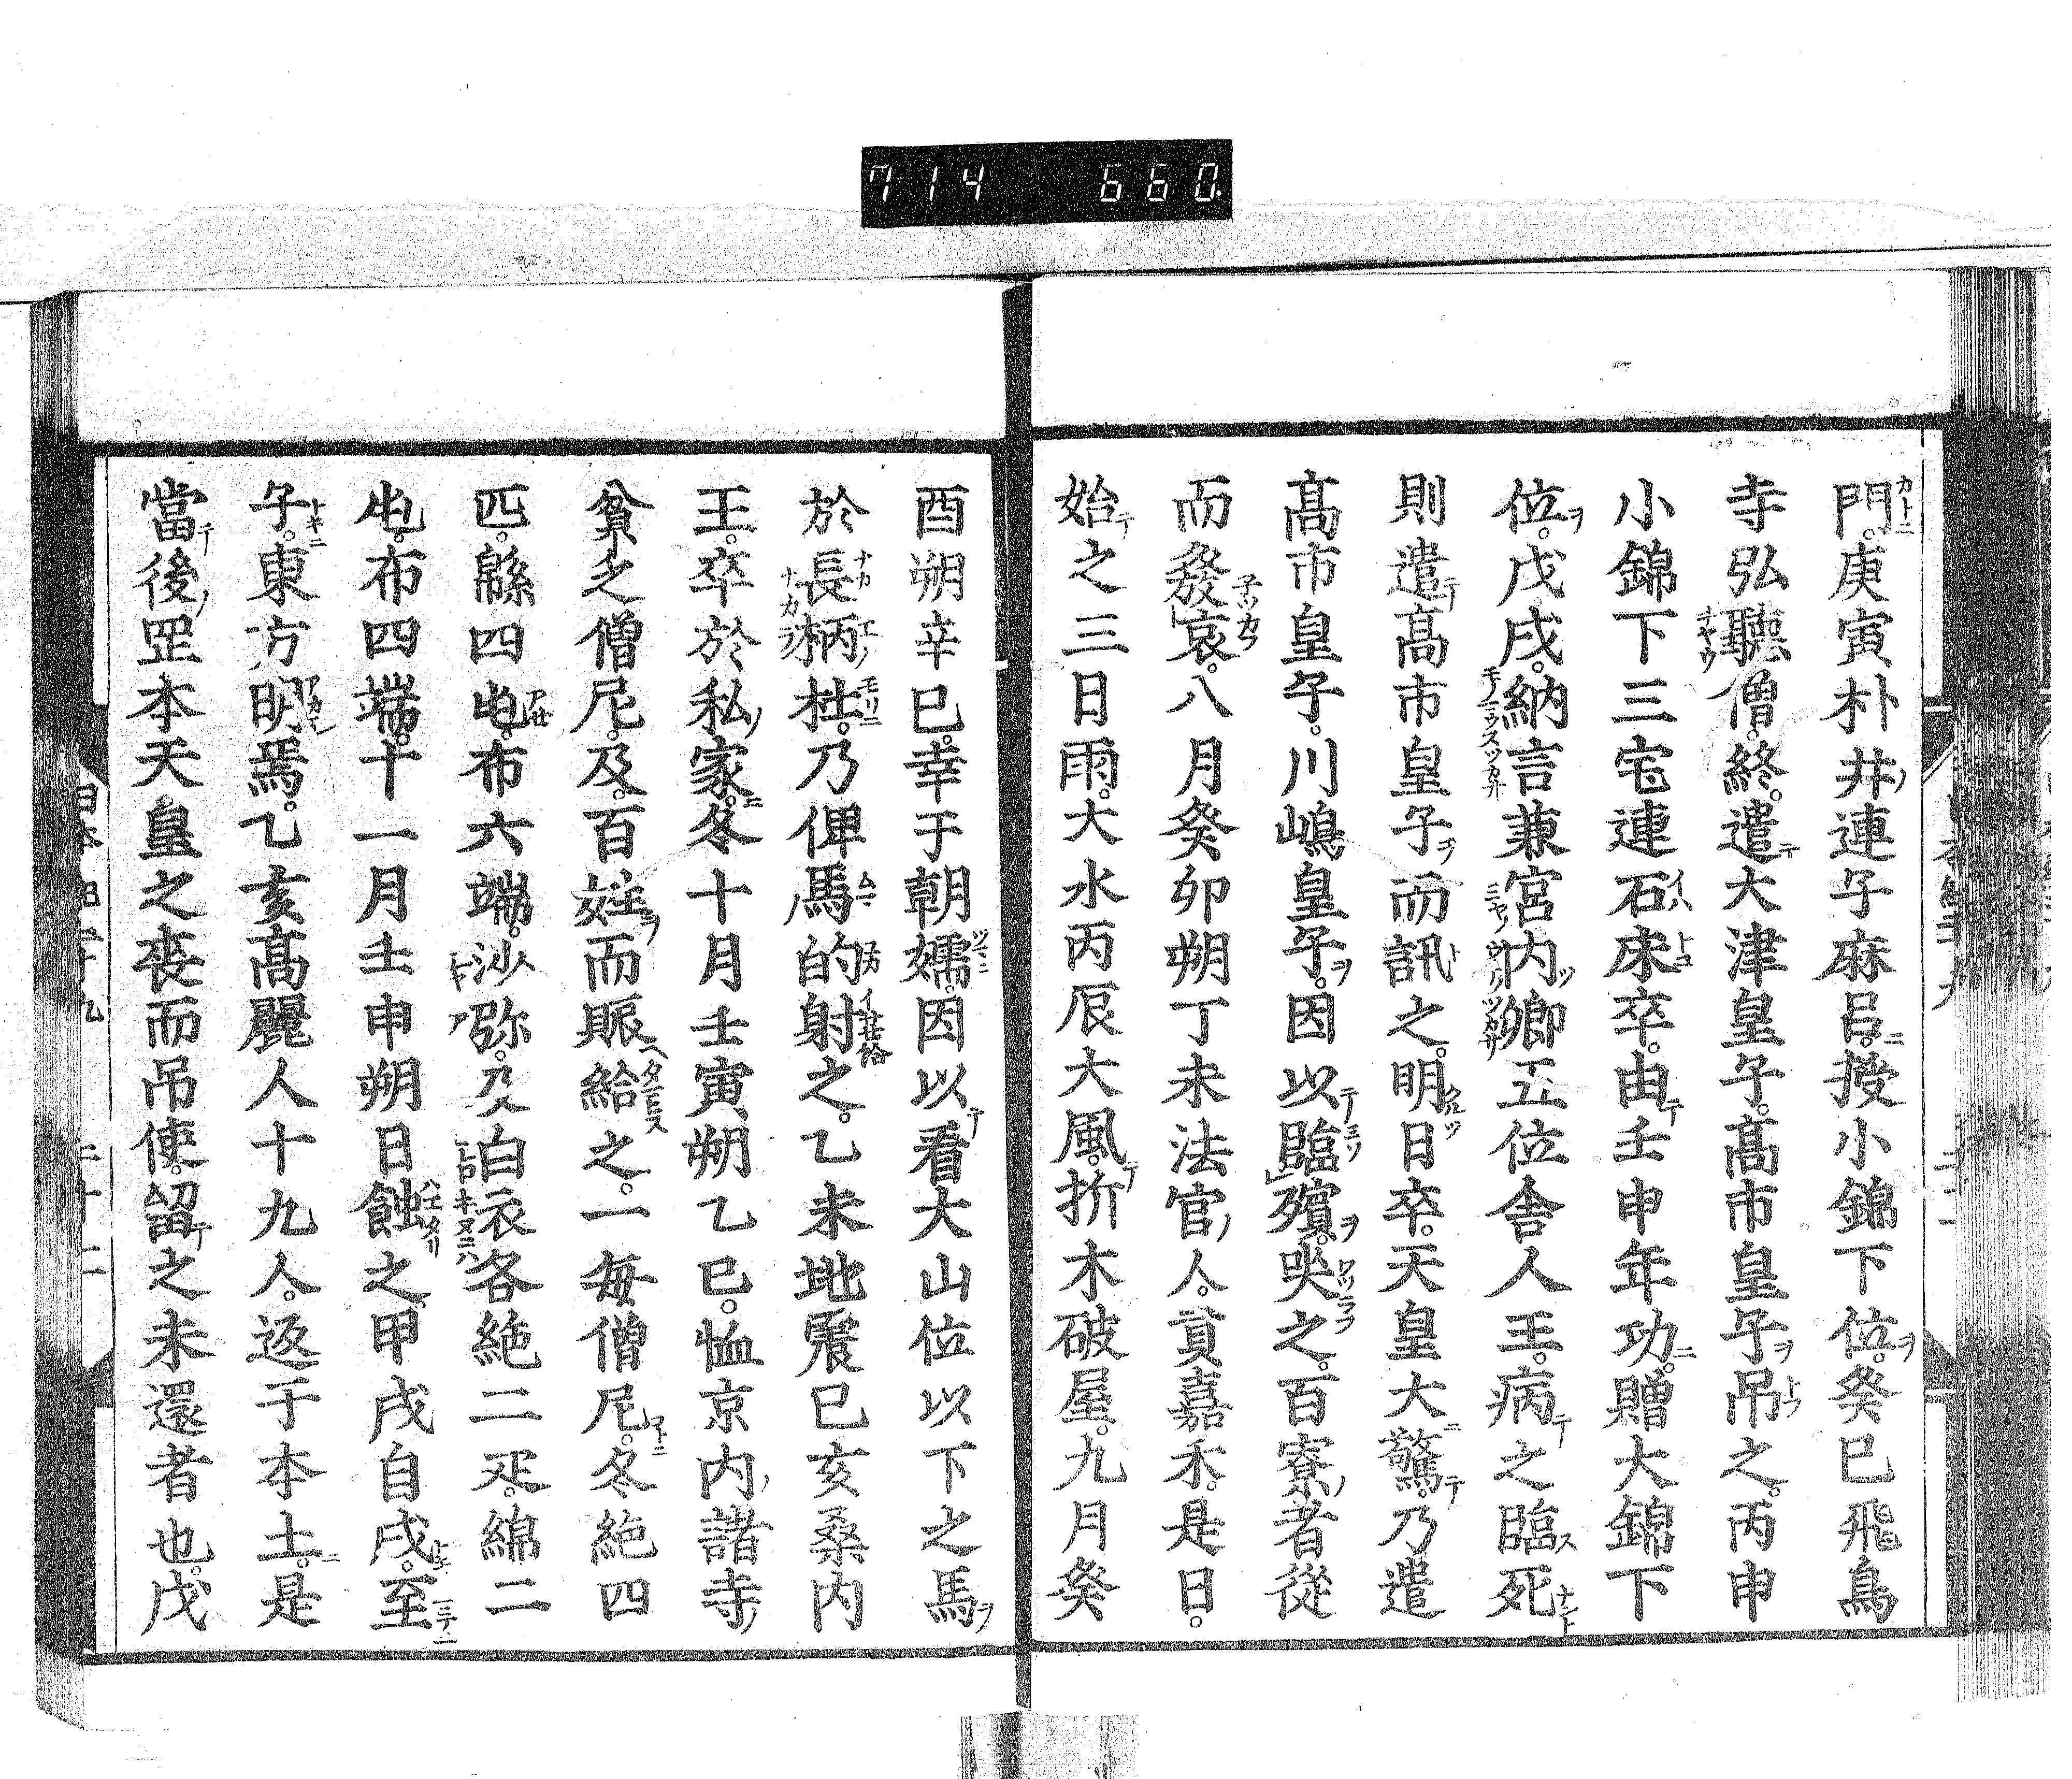 714 660
門。庚寅朴井連子麻呂。授小錦下位。癸巳飛鳥
寺弘聽僧。終。遣大津皇子。髙市皇子吊之。丙申
小錦下三宅連石床卒。由壬申年功。贈大錦下
位。戊戌。納言兼宮内卿五位舎人王。病之臨死
則遣髙市皇子而訊之。明日卒。天皇大驚。乃遣
髙市皇子。川嶋皇子。因以臨殯。哭之。百寮者從
而發哀。八月癸卯朔丁未法官人。貢嘉禾。是日。
始之三日雨。大水丙辰大風。折木破屋。九月癸
酉朔辛巳。幸于朝嬬。因以看大山位以下之馬
於長柄杜。乃俾馬的射之。乙未地震己亥桑内
王。卒於私家。冬十月壬寅朔乙巳。恤京内諸寺
貧乏僧尼。及。百姓而賑給之。一毎僧尼。各絁四
匹。緜四屯。布六端。沙弥。及白衣各絁二疋。綿二
屯。布四端。十一月壬申朔日蝕之。甲戌自戌。至
子。東方明焉。乙亥髙麗人十九人。返于本土。是
當後岡本天皇之喪而吊使。留之未還者也。戊